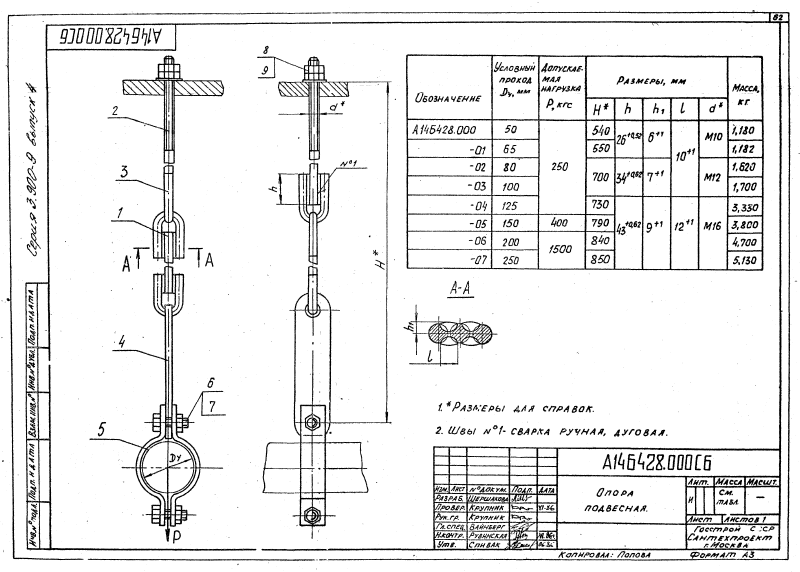 82
А14Б428.000СБ
Серия 3.900-9 выпуск 4
Инв.№подл. Подп. и дата Взам.инв.№ Инв.№дубл. Подп. и дата
8
9
2
d*
3
№1
h
1
А А
H*
4
6
7
5
Dу
P
Обозначение Условный проход Dу, мм Допускаемая нагрузка Р, кгс Размеры, мм Масса, кг
H* h h₁ l d*
А14Б428.000 50 250 540 26+0,52 6+1 10+1 М10 1,180
-01 65 650 1,182
-02 80 700 34+0,62 7+1 М12 1,620
-03 100 1,700
-04 125 730 43+0,62 9+1 12+1 М16 3,330
-05 150 400 790 3,800
-06 200 1500 840 4,700
-07 250 850 5,130
А-А
h₁
l
1.* Размеры для справок.
2. Швы №1- сварка ручная, дуговая.
А14Б428.000СБ
Изм. Лист №докум. Подп. Дата
Разраб. Шершакова
Провер. Крупник
Рук.гр. Крупник
Гл.спец. Вайнберг
Н.контр. Рувинская
Утв. Спивак
Опора
подвесная.
Лит. Масса Масшт.
И См. табл. —
Лист Листов 1
Госстрой СССР
Сантехпроект
г.Москва
Копировал: Попова Формат А3